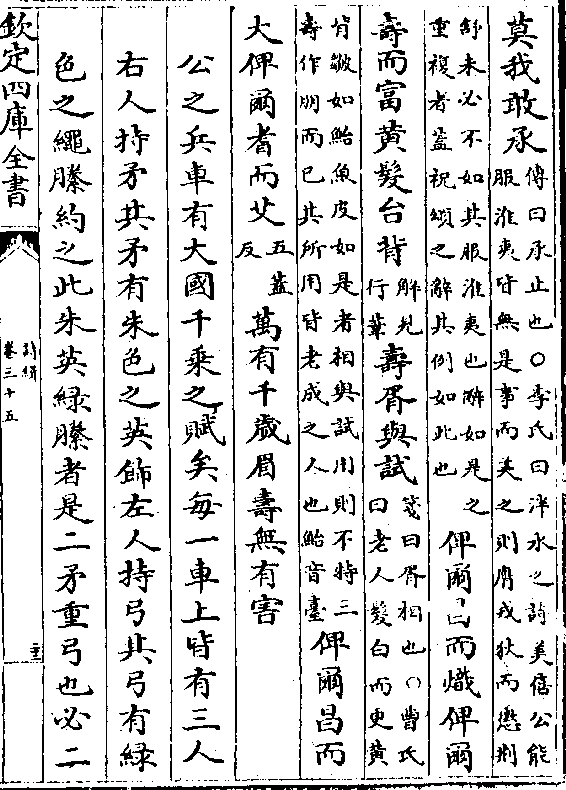 莫我敢承傳曰承止也○李氏曰泮水之詩美僖公能
服淮夷皆無是事而美之則膺戎狄而懲荆
舒未必不如其服淮夷也辭如是之
重複者葢祝頌之辭其例如此也俾爾昌而熾俾爾
壽而富黄髮台背解見
行葦壽胥與試箋曰胥相也○曹氏
曰老人髮白而更黄
背皺如鮐魚皮如是者相與試用則不特三
壽作朋而已其所用皆老成之人也鮐音臺俾爾昌而
大俾爾耆而艾五葢
反萬有千歲眉壽無有害
公之兵車有大國千乘之賦矣每一車上皆有三人
右人持矛其矛有朱色之英飾左人持弓其弓有綠
色之繩縢約之此朱英綠縢者是二矛重弓也必二
欽定四庫全書
詩緝
卷三十五